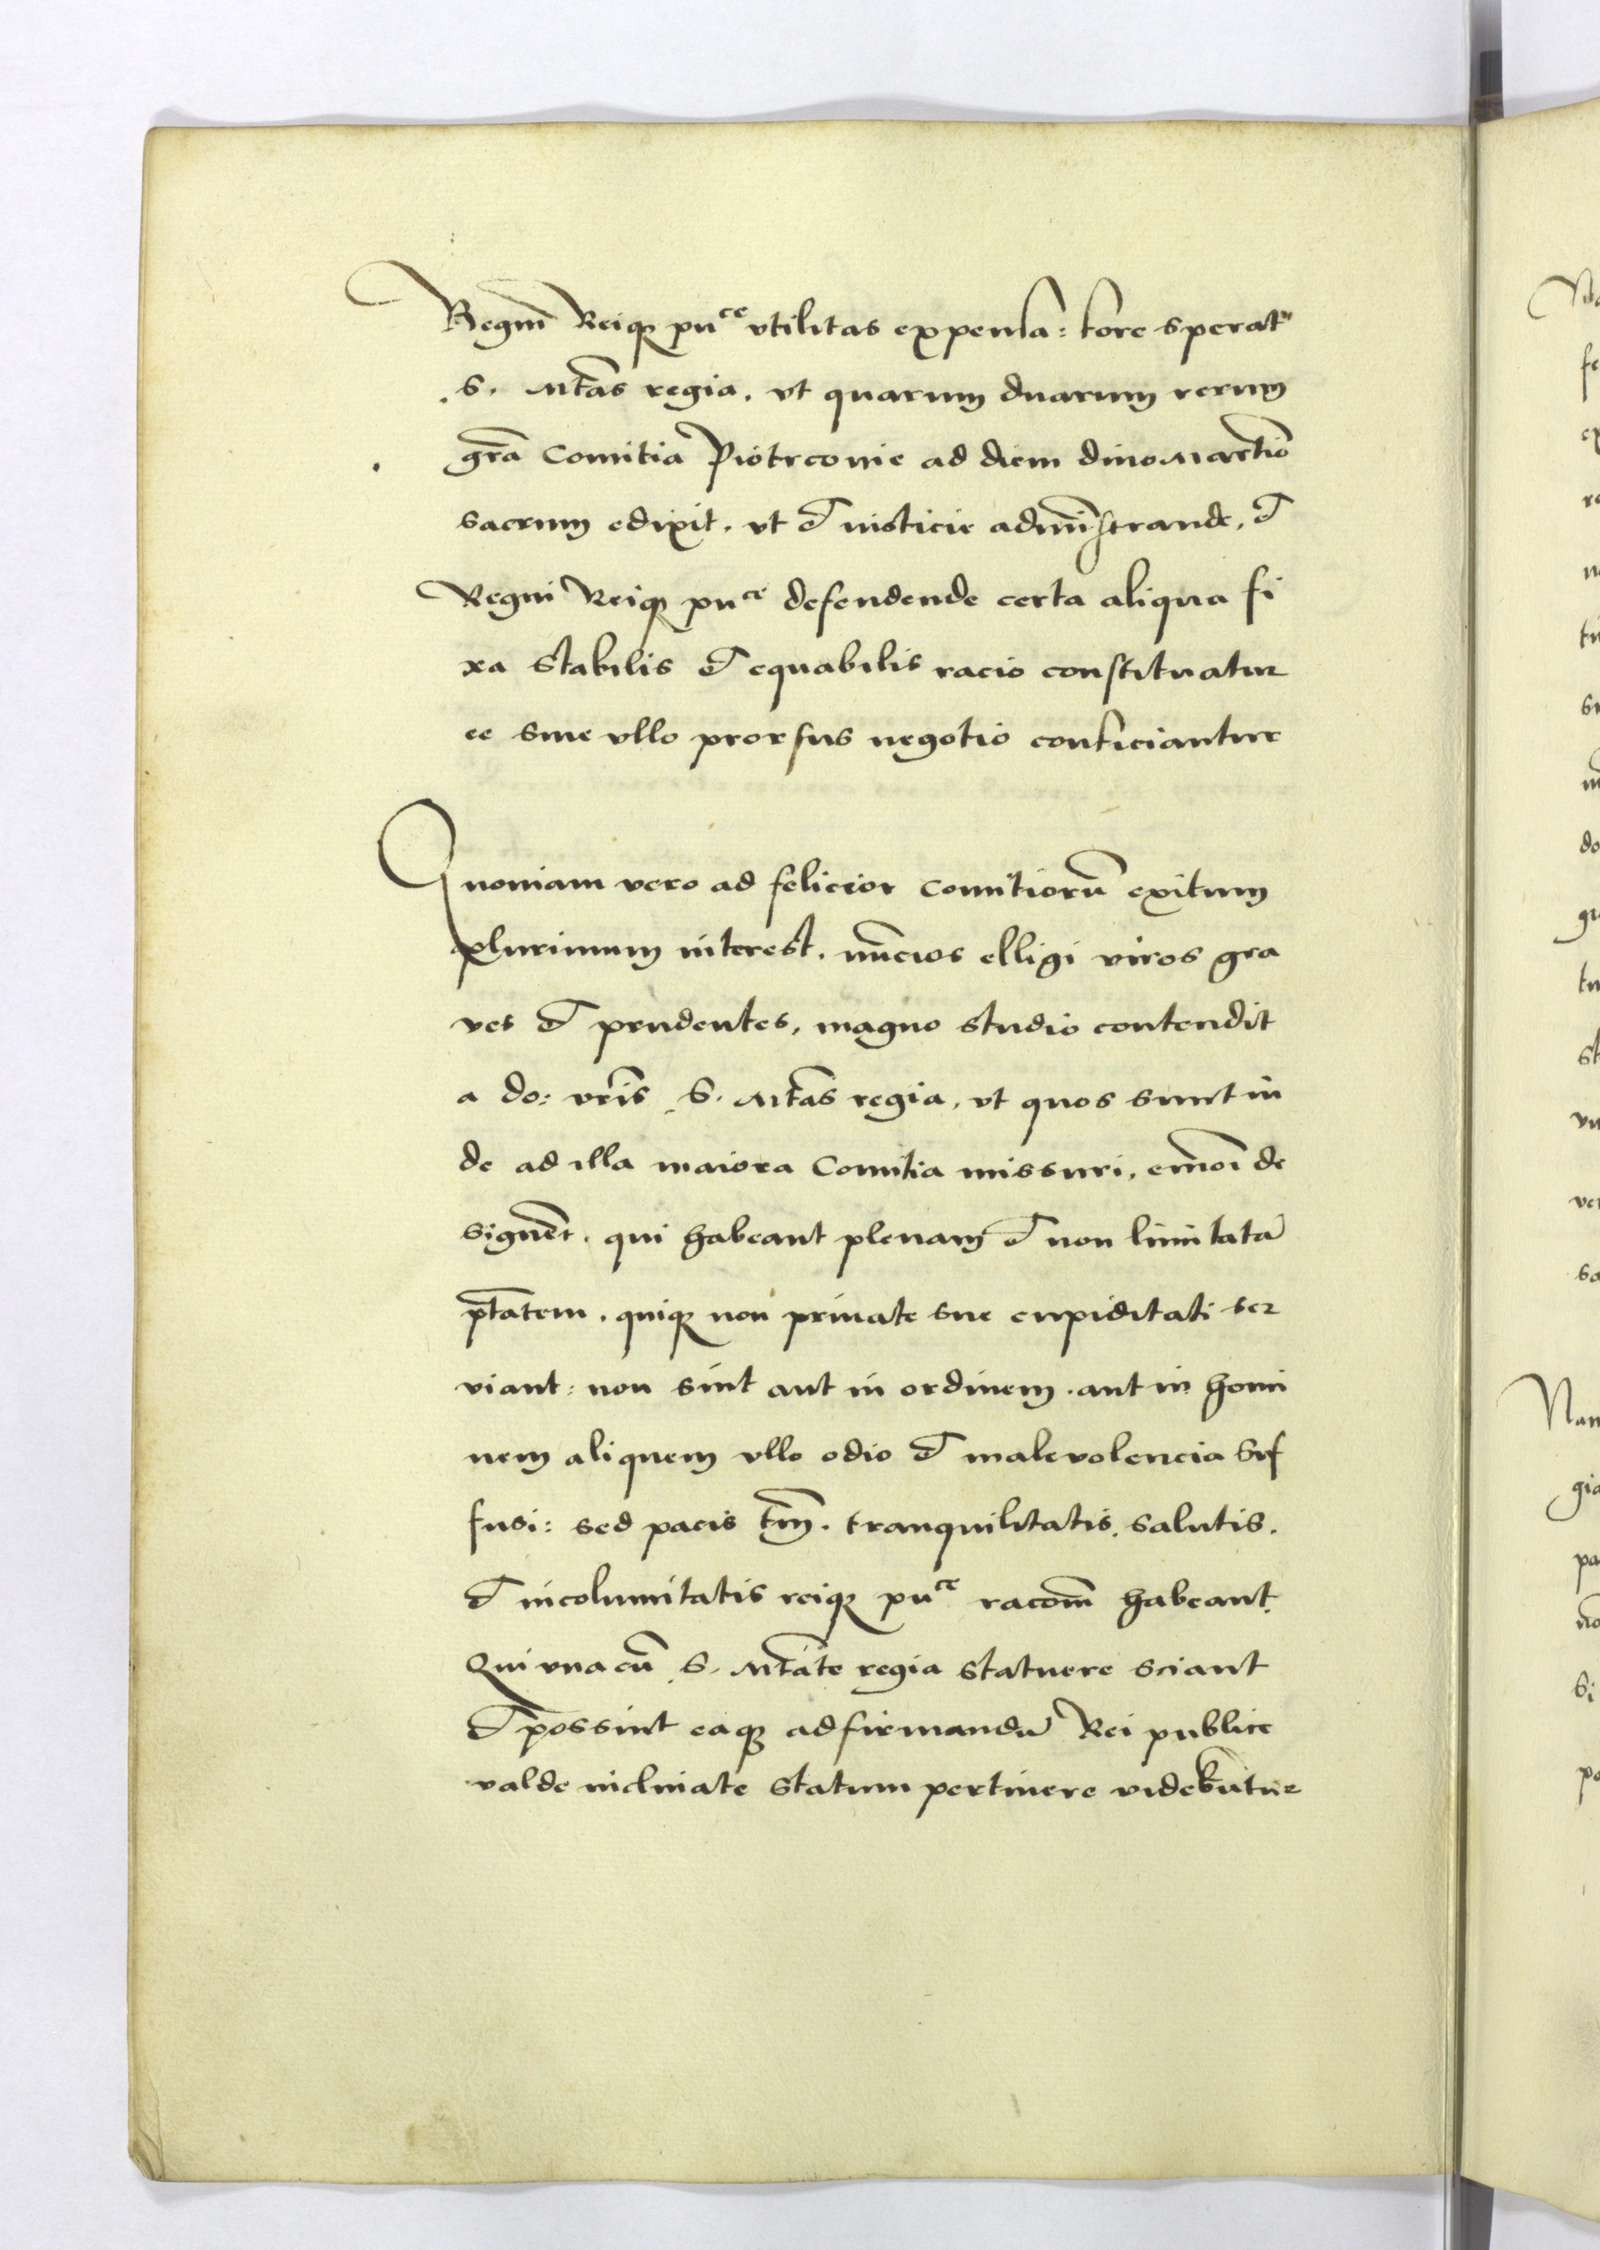 Regni Reiq; puce vtilitas expensa: fore sperat
S. Mtas regia. vt quarum duarum rerum
gra comitia Piotrconie ad diem diuo Martino
sacrum edixit. vt et iusticie administrande, et
Regni Reiq; puce defendende certa aliqua fi
xa stabilis et equabilis racio constituatur
ee sine vllo prorsus negotio conficiantur
Quoniam vero ad felicior comitiorũ exitum
plurimum interest. nũcios elligi viros gra
ves et prudentes, magno studio contendit
a do: vris S. Mtas regia, vt quos sunt in
de ad illa maiora Comitia missuri, de
signẽt. qui habeant plenam et non limitatã
ptatem. quiq; non priuate sue cupiditati ser
viant: non sint aut in ordinem. aut in homi
nem aliquem vllo odio et malevolencia suf
fusi: sed pacis tm. tranquilitatis. salutis.
et incolumitatis reiq; puce racom habeant.
Qui vna cũ S. Mtate regia statuere sciant
et possint eaq; ad firmandũ Rei publice
valde inclinate statum pertinere videbũtur